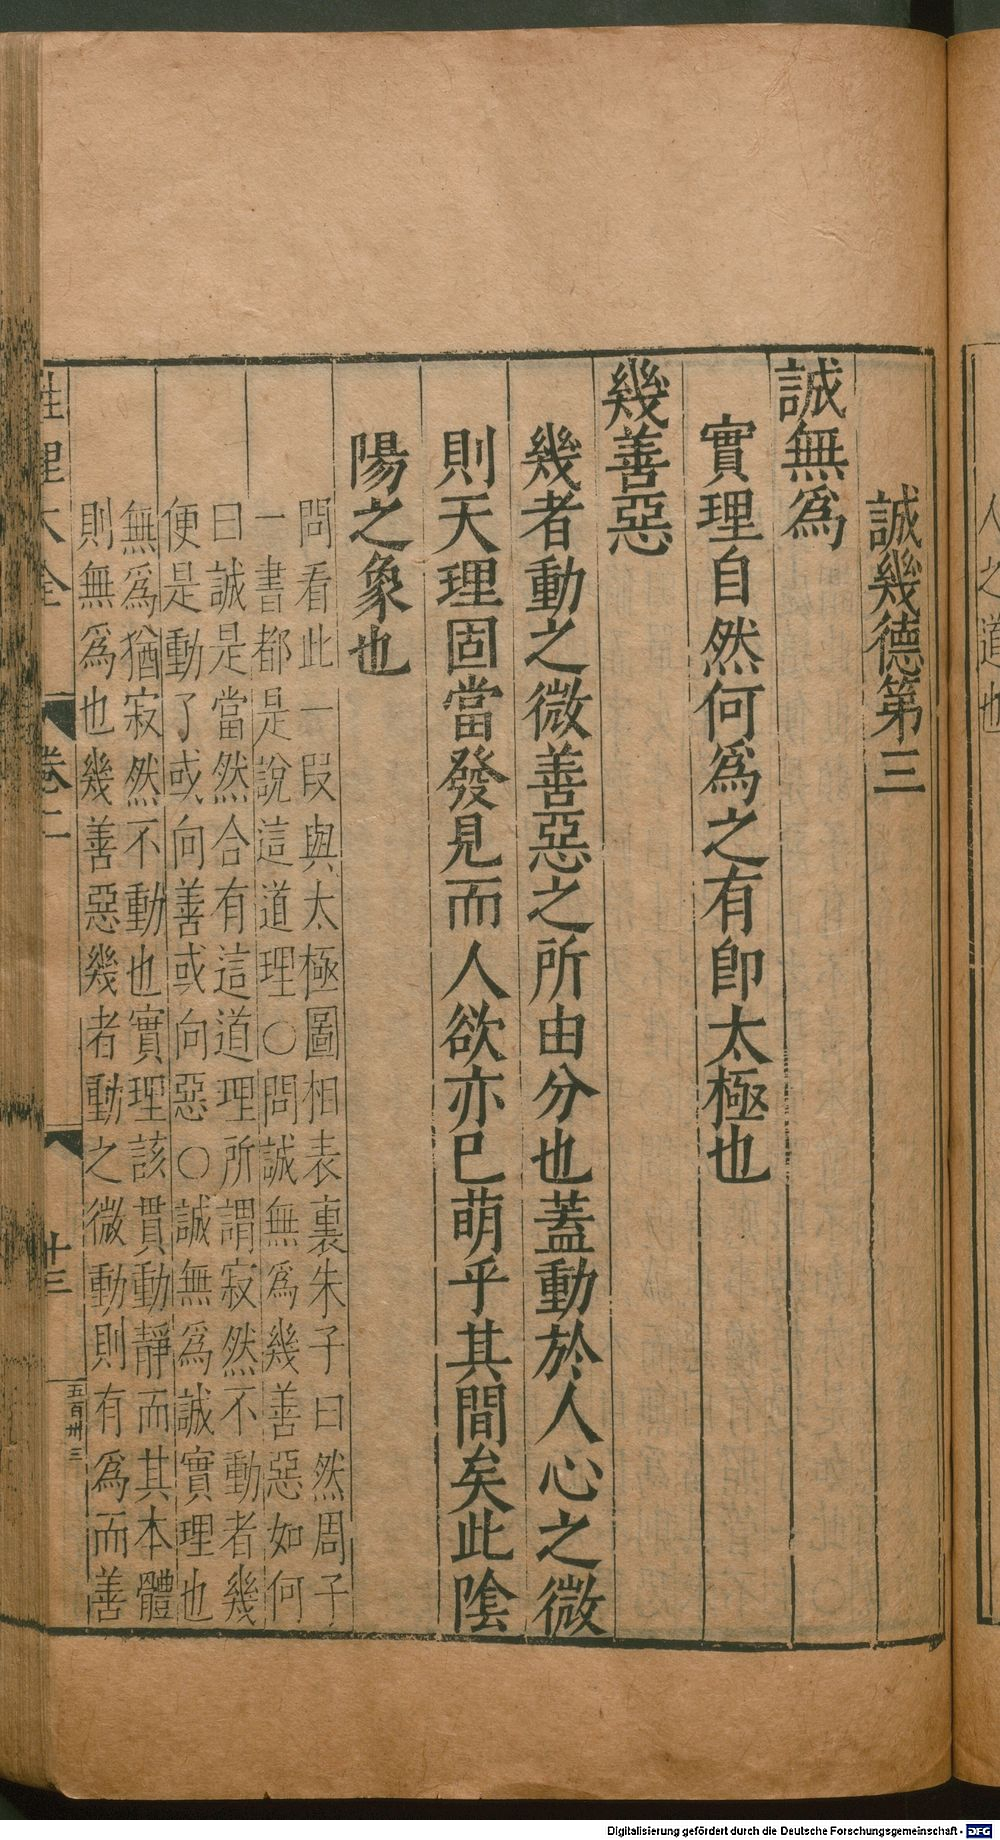 人之道也
誠幾德第三
誠無爲
實理自然何爲之有卽太極也
幾善惡
幾者動之微善惡之所由分也蓋動於人心之微
則天理固當發見而人欲亦已萌乎其間矣此陰
陽之象也
問看此一段與太極圖相表裏朱子曰然周子
一書都是說這道理○問誠無爲幾善惡如何
曰誠是當然合有這道理所謂寂然不動者幾
便是動了或向善或向惡○誠無爲誠實理也
無爲猶寂然不動也實理該貫動靜而其本體
則無爲也幾善惡幾者動之微動則有爲而善
性理大全
卷二
十三
五百卅三
Digitalisierung gefördert durch die Deutsche Forschungsgemeinschaft - DFG